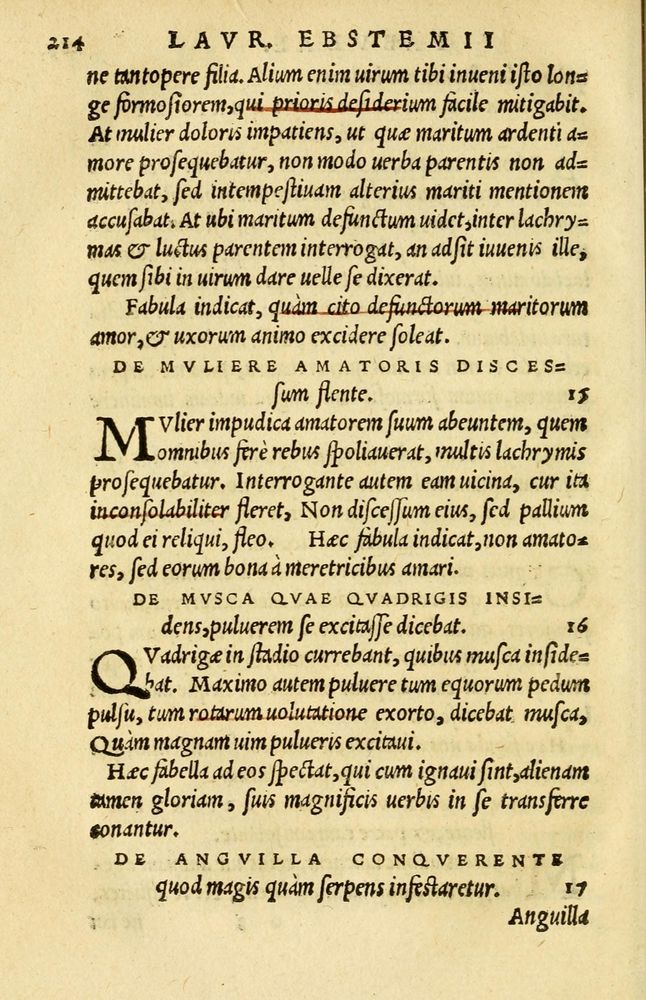 214 LAVR. EBSTEMII
ne tantopere filia. Alium enim uirum tibi inueni iſto lon=
ge formoſiorem,qui prioris deſiderium facile mitigabit.
At mulier doloris impatiens, ut quæ maritum ardenti a=
more proſequebatur, non modo uerba parentis non ad=
mittebat, ſed intempeſtiuam alterius mariti mentionem
accuſabat. At ubi maritum defunctum uidet,inter lachry=
mas & luctus parentem interrogat, an adſit iuuenis ille,
quem ſibi in uirum dare uelle ſe dixerat.
Fabula indicat, quàm cito defunctorum maritorum
amor,& uxorum animo excidere ſoleat.
DE MVLIERE AMATORIS DISCES=
ſum flente. 15
MVlier impudica amatorem ſuum abeuntem, quem
omnibus ferè rebus ſpoliauerat, multis lachrymis
proſequebatur. Interrogante autem eam uicina, cur ita
inconſolabiliter fleret, Non diſceſſum eius, ſed pallium
quod ei reliqui, fleo. Hæc fabula indicat,non amato=
res, ſed eorum bona à meretricibus amari.
DE MVSCA QVAE QVADRIGIS INSI=
dens,puluerem ſe excitaſſe dicebat. 16
QVadrigæ in ſtadio currebant, quibus muſca inſide=
bat. Maximo autem puluere tum equorum pedum
pulſu, tum rotarum uolutatione exorto, dicebat muſca,
Quàm magnam uim pulueris excitaui.
Hæc fabella ad eos ſpectat,qui cum ignaui ſint,alienam
tamen gloriam, ſuis magnificis uerbis in ſe transferre
conantur.
DE ANGVILLA CONQVERENTE
quod magis quàm ſerpens infeſtaretur. 17
Anguilla